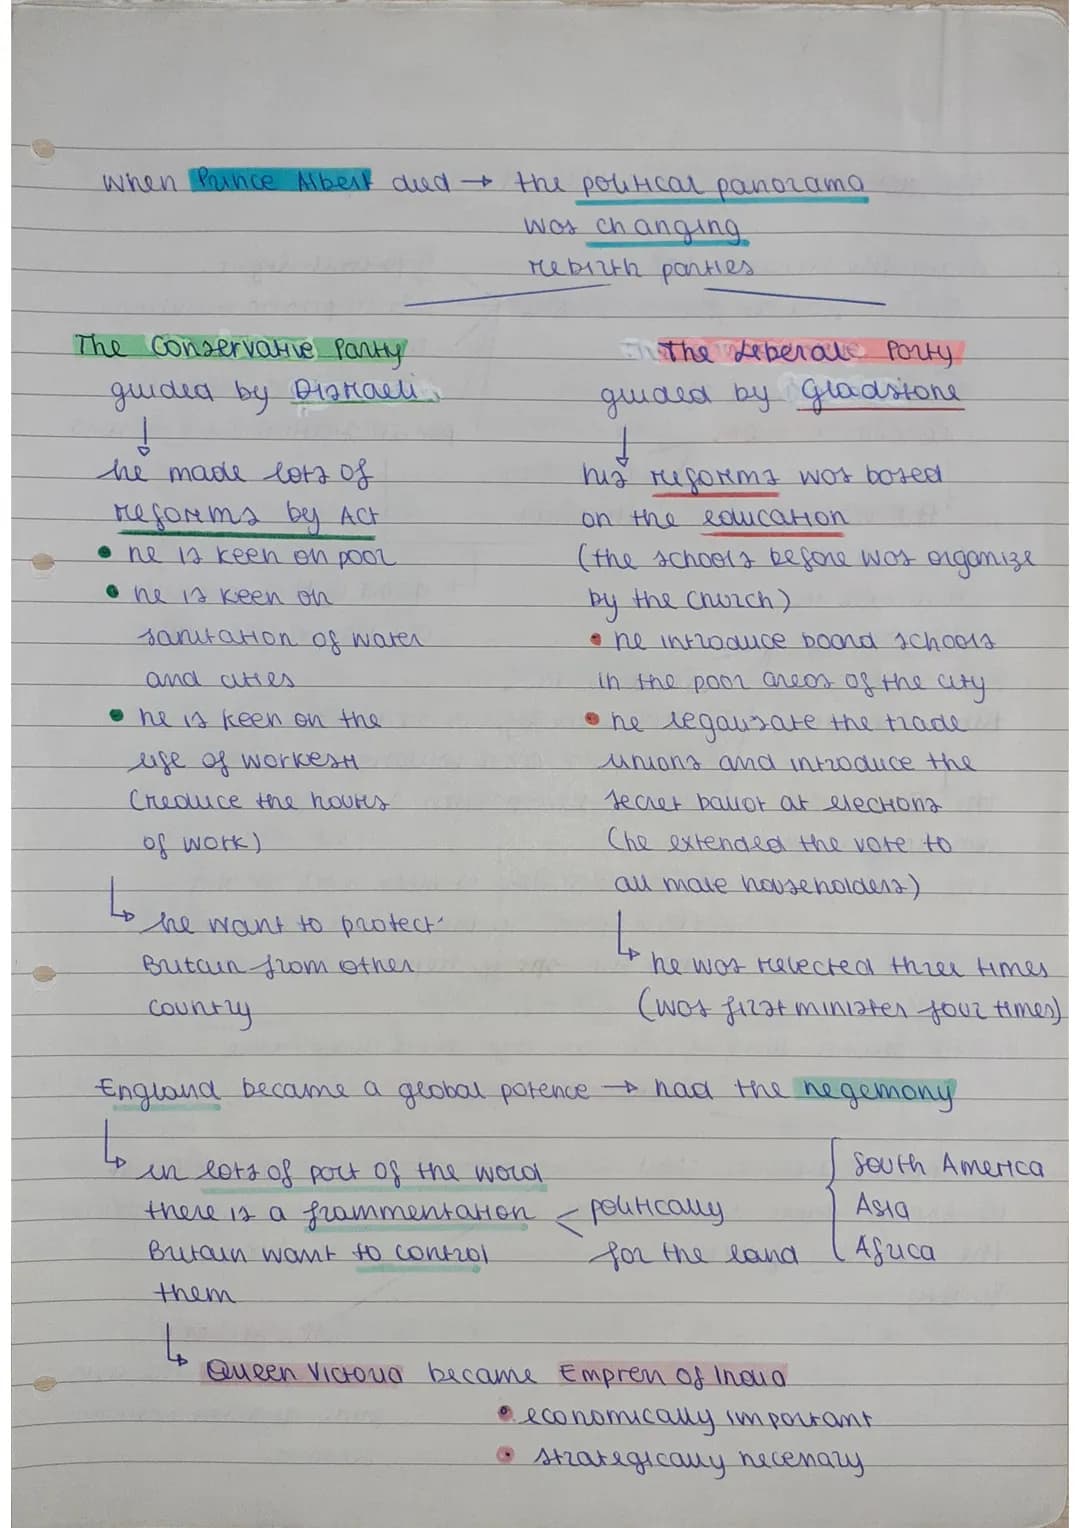 When Prince Albert died → the political panorama
was changing
rebirth parties
The Conservative Party
guided by Disraeli
he made lots of
reforms by Act
• he is keen on poor
• he is keen on
sanitation of water
and cities
• he is keen on the
life of workers
(reduce the hours
of work)
he want to protect
Britain from other
country
The Leberale Party
guided by Gladstone
his reforms was based
on the education
(the schools before was organize
by the church)
• he introduce board schools
in the poor areas of the city
• he legalisate the trade
unions and introduce the
secret ballot at elections
(he extended the vote to
all male householders)
he was relected three times
(was first minister four times)
England became a global potence → had the hegemony
in lots of part of the word
there is a frammentation < politically
Britain want to control for the land
them
South America
Asia
Africa
Queen Victoria became Empress of India
• economically important
• strategically necessary